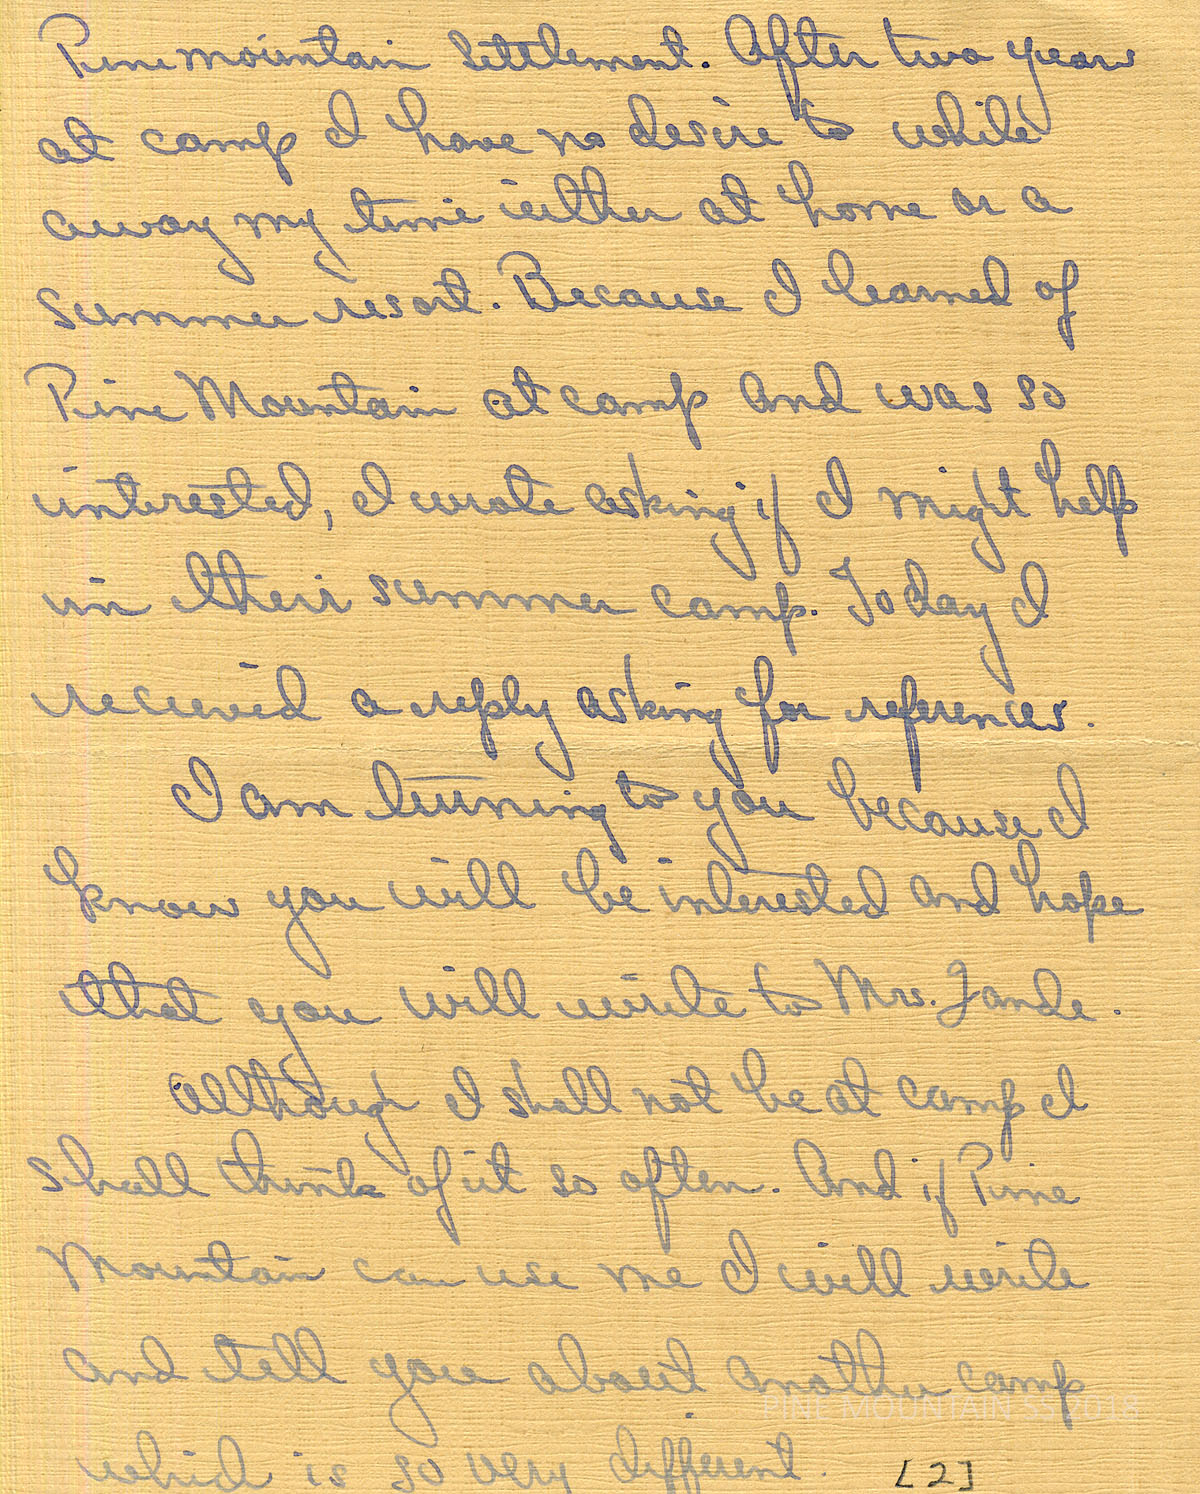 Pine mountain Settlement. After two years
at camp I have no desire to while
away my time either at home or a
summer resort. Because I learned of
Pine Mountain at camp and was so
interested, I wrote asking if I might help
in their summer camp. Today I
recieved a reply asking for references.
I am turning to you because I
know you will be interested and hope
that you will write to Mrs. Zande.
Although I shall not be at camp I
shall think of it so often. And if Pine
Mountain can use me I will write
and tell you about another camp
PINE MOUNTAIN SS 2018
which is so very different.
[2]